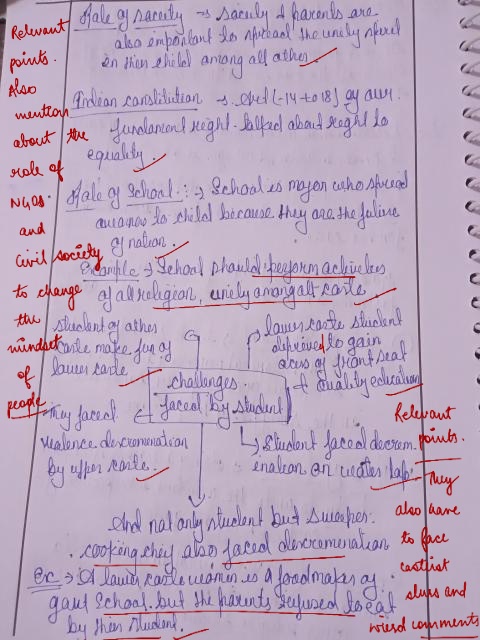 Relevant
points.
Also
mention
about the
role of
NGOs
and
civil society
to change
the
mindset
of
people
Role of society → society & parents are
also important to spread the unity
in their child among all other
Indian constitution → Art (-14 to 18) of our
fundament right talked about right to
equality
Role of School :→ School is major who spread
to child because they are the future
of nation.
Example → School should perform activities
of all religion, unity among all caste
student of other
caste make fun of
lower caste
lower caste student
deprived to gain
of front seat
+ quality education
challenges
faced by student
They faced
violence descremenation
by upper caste.
Student faced decrem
enation on water tap
And not only student but sweeper.
cooking they also faced descremenation
Ex:→ A lower caste women is a foodmaker of
govt School. but the parents refused to eat
by their student.
Relevant
points.
They
also have
to face
casteist
slurs and
comments